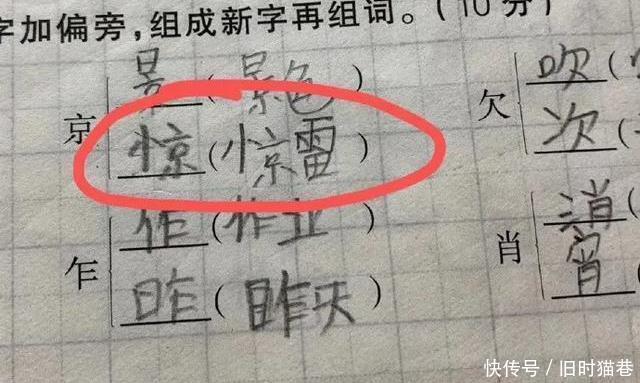 字加偏旁,组成新字再组词。(10分)
京 景(景色)
惊(惊雷)
乍 作(作业)
昨(昨天)
欠 吹(
次(
肖 消(
宵
快传号/旧时猫巷